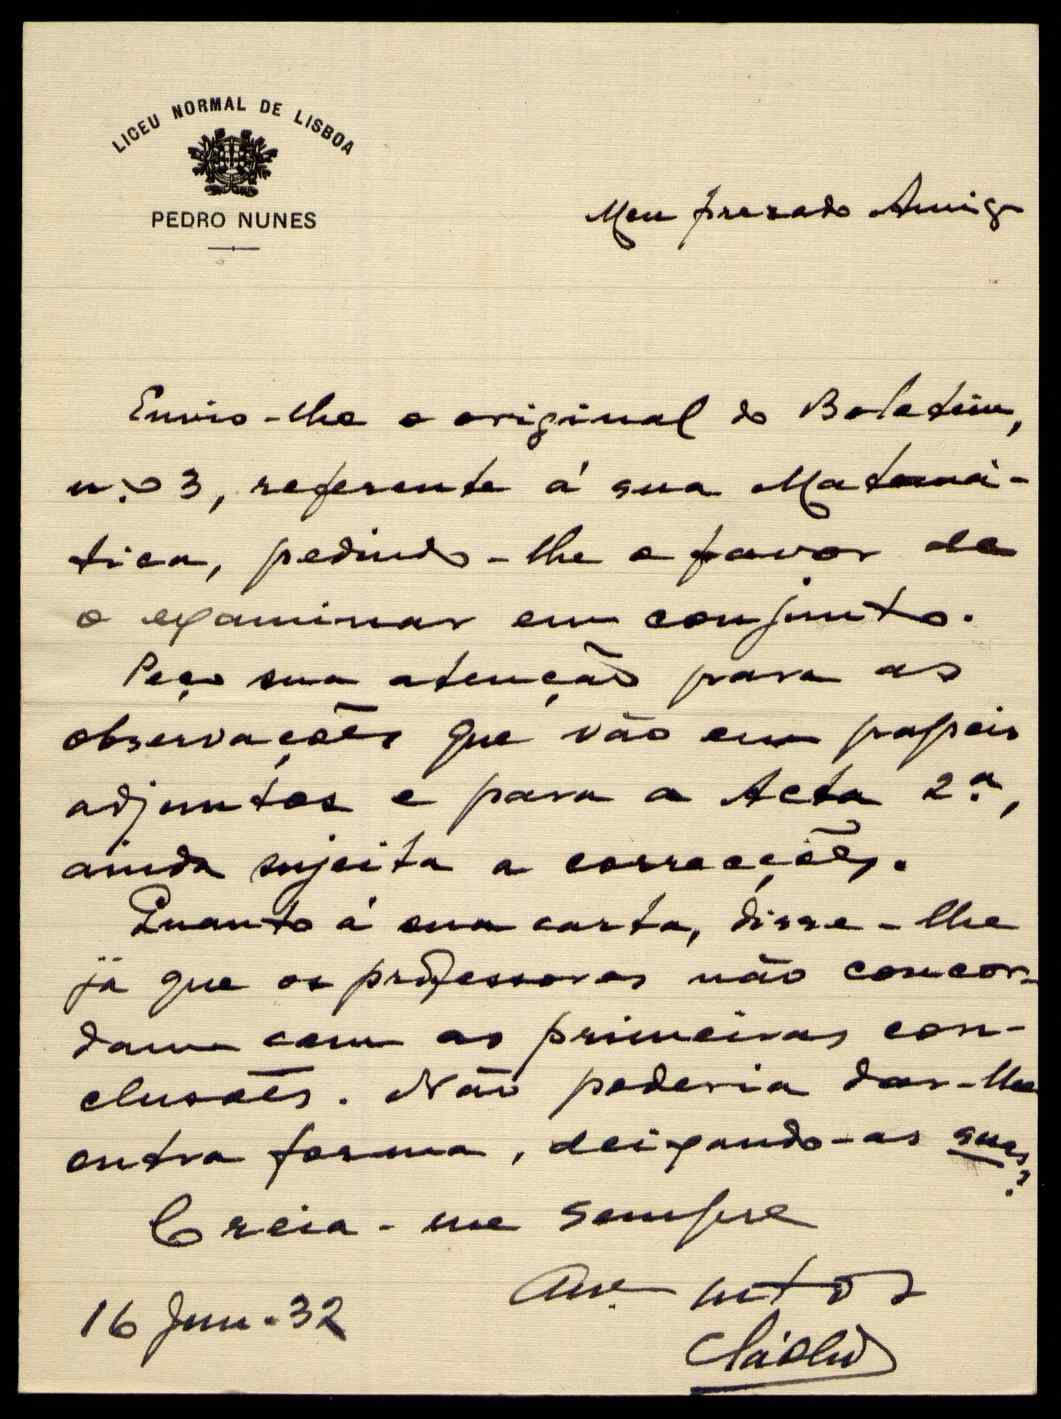 LICEU NORMAL DE LISBOA
PEDRO NUNES
Meu prezado Amigo
Envio-lhe o original do Boletim,
n.º 3, referente á sua Matemá-
tica, pedindo-lhe o favor de
o examinar em conjunto.
Peço sua atenção para as
observações que vão em papeis
adjuntos e para a Acta 2.ª,
ainda sujeita a correcções.
Quanto á sua carta, disse-lhe
já que os professores não concor-
dam com as primeiras con-
clusões. Não poderia dar-lhe
outra forma, deixando-as suas?
Creia-me sempre
Am.º
16 Jun. 32